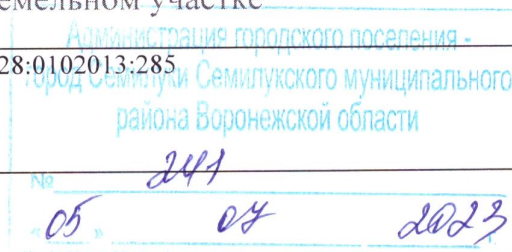 емельном участке
Администрация городского поселения -
28:0102013:285
город Семилуки Семилукского муниципального
района Воронежской области
№ 241
« 05 » 07 2023